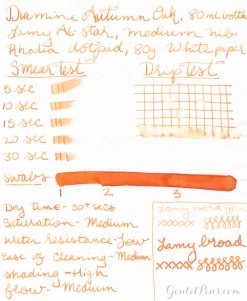 Diamine Autumn Oak, 80ml bottle
Lamy Al-star, medium nib
Rhodia dotpad, 80g White paper
Smear Test
Drip Test
5 sec
10 sec
15 sec
20 sec
30 sec
swabs
1 2 3
Dry time- 30+ secs
Saturation- Medium
Water resistance- Low
Ease of Cleaning- Medium
shading- High
flow- Medium
Lamy word fine
xxxxxx
Lamy broad
xxxxx
GouletPens.com